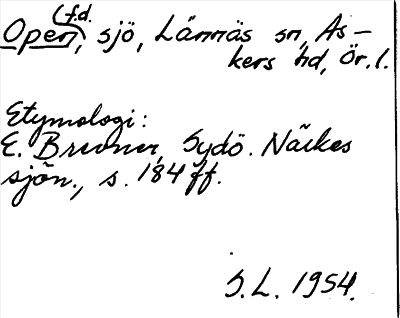 (f.d.
Open), sjö, Lännäs sn, As-
kers hd, Ör. l.
Etymologi:
E. Brevner, Sydö. Närkes
sjön., s. 184 ff.
S.L. 1954.